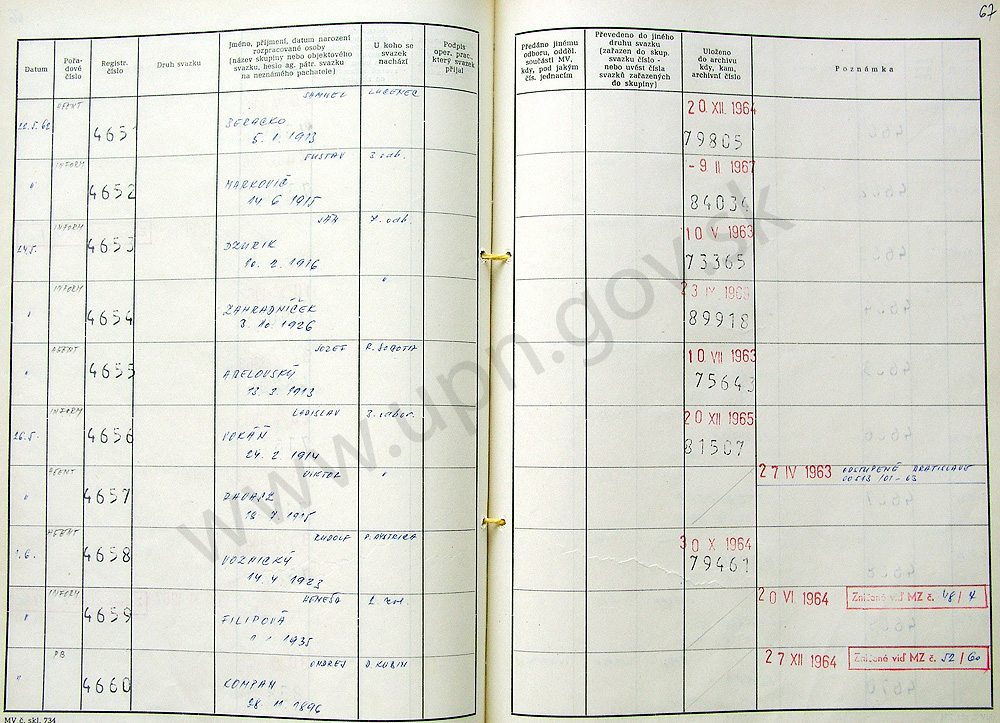 67
Datum
Pořa-
dové
číslo
Registr.
číslo
Druh svazku
Jméno, příjmení, datum narození
rozpracované osoby
(název skupiny nebo objektového
svazku, heslo ag. pátr. svazku
na neznámého pachatele)
U koho se
svazek
nachází
Podpis
oper. prac.,
který svazek
přijal
Předáno jinému
odboru, odděl.
součásti MV,
kdy, pod jakým
čís. jednacím
Převedeno do jiného
druhu svazku
(zařazen do skup.
svazku číslo -
nebo uvést čísla
svazků zařazených
do skupiny)
Uloženo
do archivu
kdy, kam,
archivní číslo
Poznámka
AGENT SAMUEL LUČENEC 20 XII. 1964
22.5.62 4651
5.1.1913 79805
INFORM GUSTAV 3. odb. - 9 II. 1967
" 4652 MARKOVIČ 84034
14 6 1915
INFORM JÁN 7. odb. 10 V 1963
24.5. 4653 DZURIK 73365
10. 2. 1916
INFORM " 1963
" 4654 ZAHRADNÍČEK 89918
3. 10. 1926
AGENT JOZEF R. SOBOTA 10 VII 1963
" 4655 ABELOVSKÝ 75643
13. 3. 1913
INFORM LADISLAV 3. odbor. 20 XII 1965
26.5. 4656 81507
24. 2. 1914
AGENT VIKTOR " 27 IV 1963 ODSTÚPENÉ BRATISLAVE
" 4657 1915
AGENT RUDOLF P. BYSTRICA 30 X 1964
1.6. 4658 VOZNICKÝ 79461
14. 4 1923
INFORM 20 VI. 1964 Zničené viď MZ č. 48/4
" 4659 FILIPOVÁ
1935
PB ONDREJ D. KUBIN 27 XII 1964 Zničené viď MZ č. 52/60
" 4660 KOMPAN
28 11 1896
MV č. skl. 734
www.upn.gov.sk